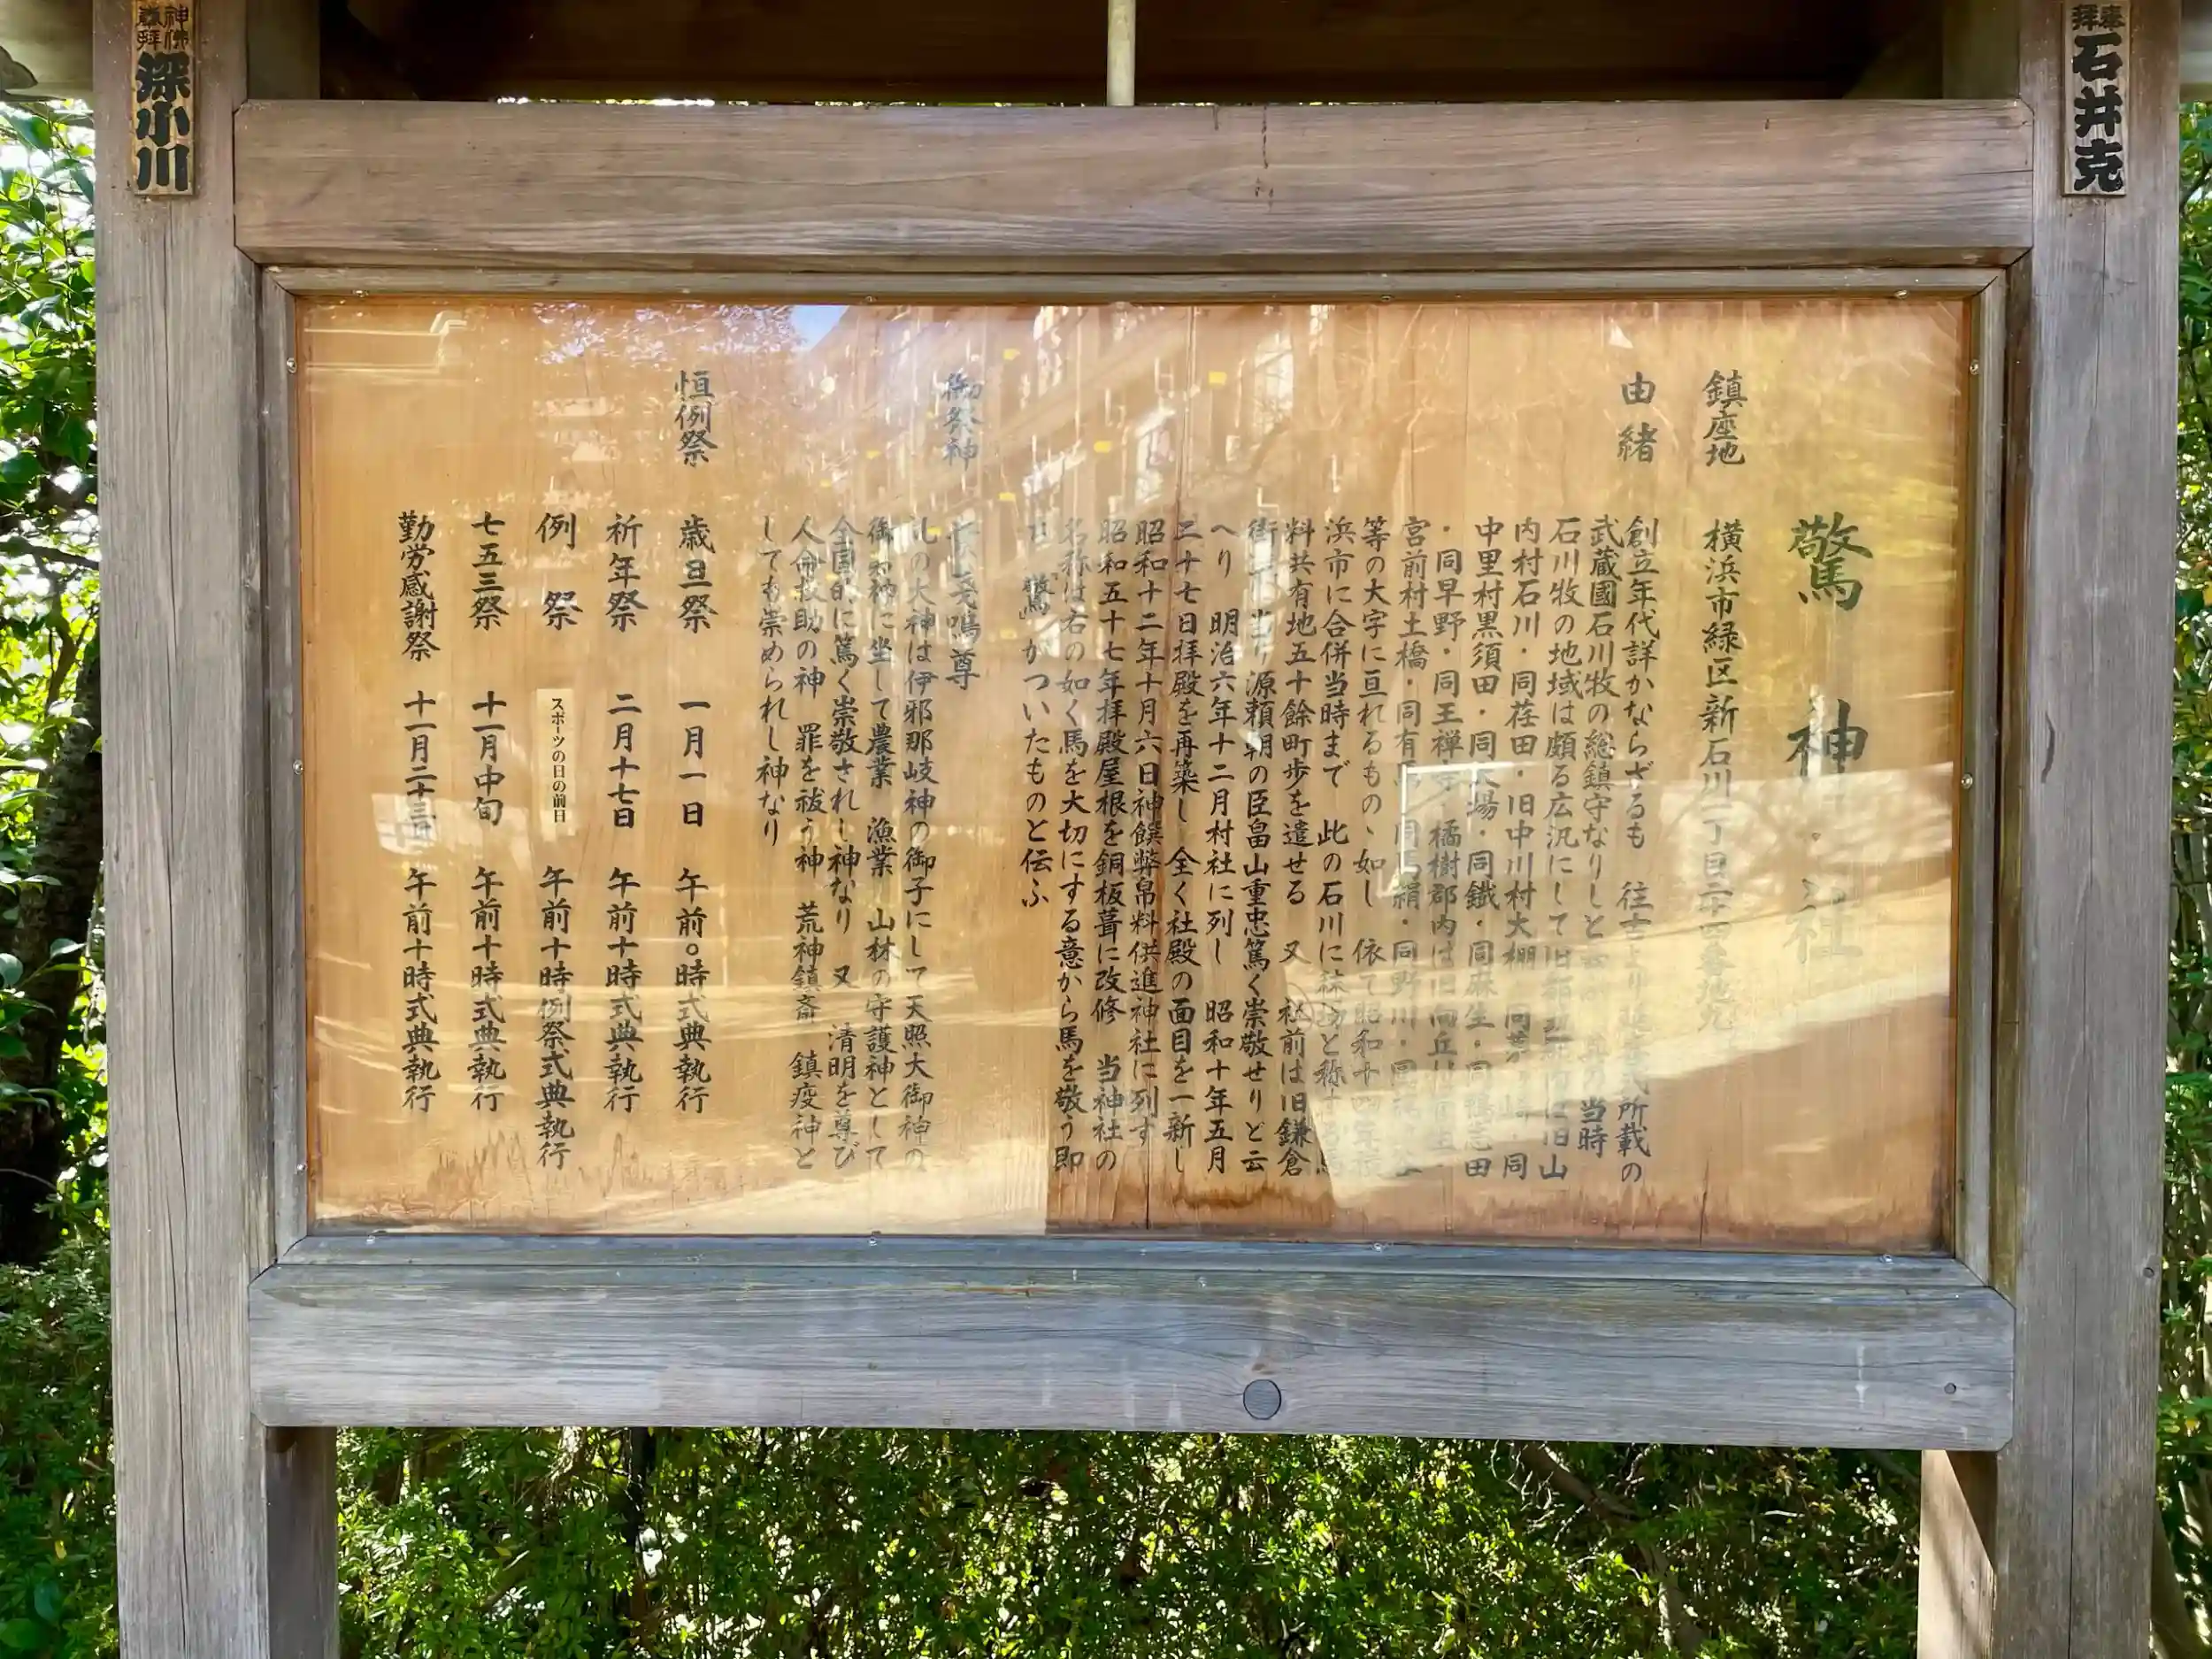 驚神社
鎮座地 横浜市緑区新石川一丁目二十四番地九
由緒
創立年代詳かならざるも 往古より 所載の
武蔵國石川牧の総鎮守なりしと 当時
石川牧の地域は頗る広汎にして旧都筑郡内は旧山
内村石川・同荏田・旧中川村大棚・同茅ヶ崎・同
中里村黒須田・同大場・同鐵・同麻生・同鴨志田
・同早野・同王禅寺・橘樹郡内は旧向丘村
宮前村土橋・同有馬・同馬絹・同野川・同
等の大字に亘れるものゝ如し 依て昭和十四年横
浜市に合併当時まで 此の石川に秣場と称する
料共有地五十餘町歩を遺せる 又 社前は旧鎌倉
街道に当り源頼朝の臣畠山重忠篤く崇敬せりと云
へり 明治六年十二月村社に列し 昭和十年五月
二十七日拝殿を再築し 全く社殿の面目を一新し
昭和十二年十月六日神饌幣帛料供進神社に列す
昭和五十七年拝殿屋根を銅板葺に改修 当神社の
名称は右の如く馬を大切にする意から馬を敬う即
ち「驚」がついたものと伝ふ
御祭神 鳴尊
しの大神は伊邪那岐神の御子にして天照大御神の
御弟神に坐して農業 漁業 山林の守護神として
全国的に篤く崇敬されし神なり 又 清明を尊び
人命救助の神 罪を祓う神 荒神鎮斎 鎮疫神と
しても崇められし神なり
恒例祭
歳旦祭 一月一日 午前〇時式典執行
祈年祭 二月十七日 午前十時式典執行
例祭 スポーツの日の前日 午前十時例祭式典執行
七五三祭 十一月中旬 午前十時式典執行
勤労感謝祭 十一月二十三日 午前十時式典執行
石井克
神佛
深小川